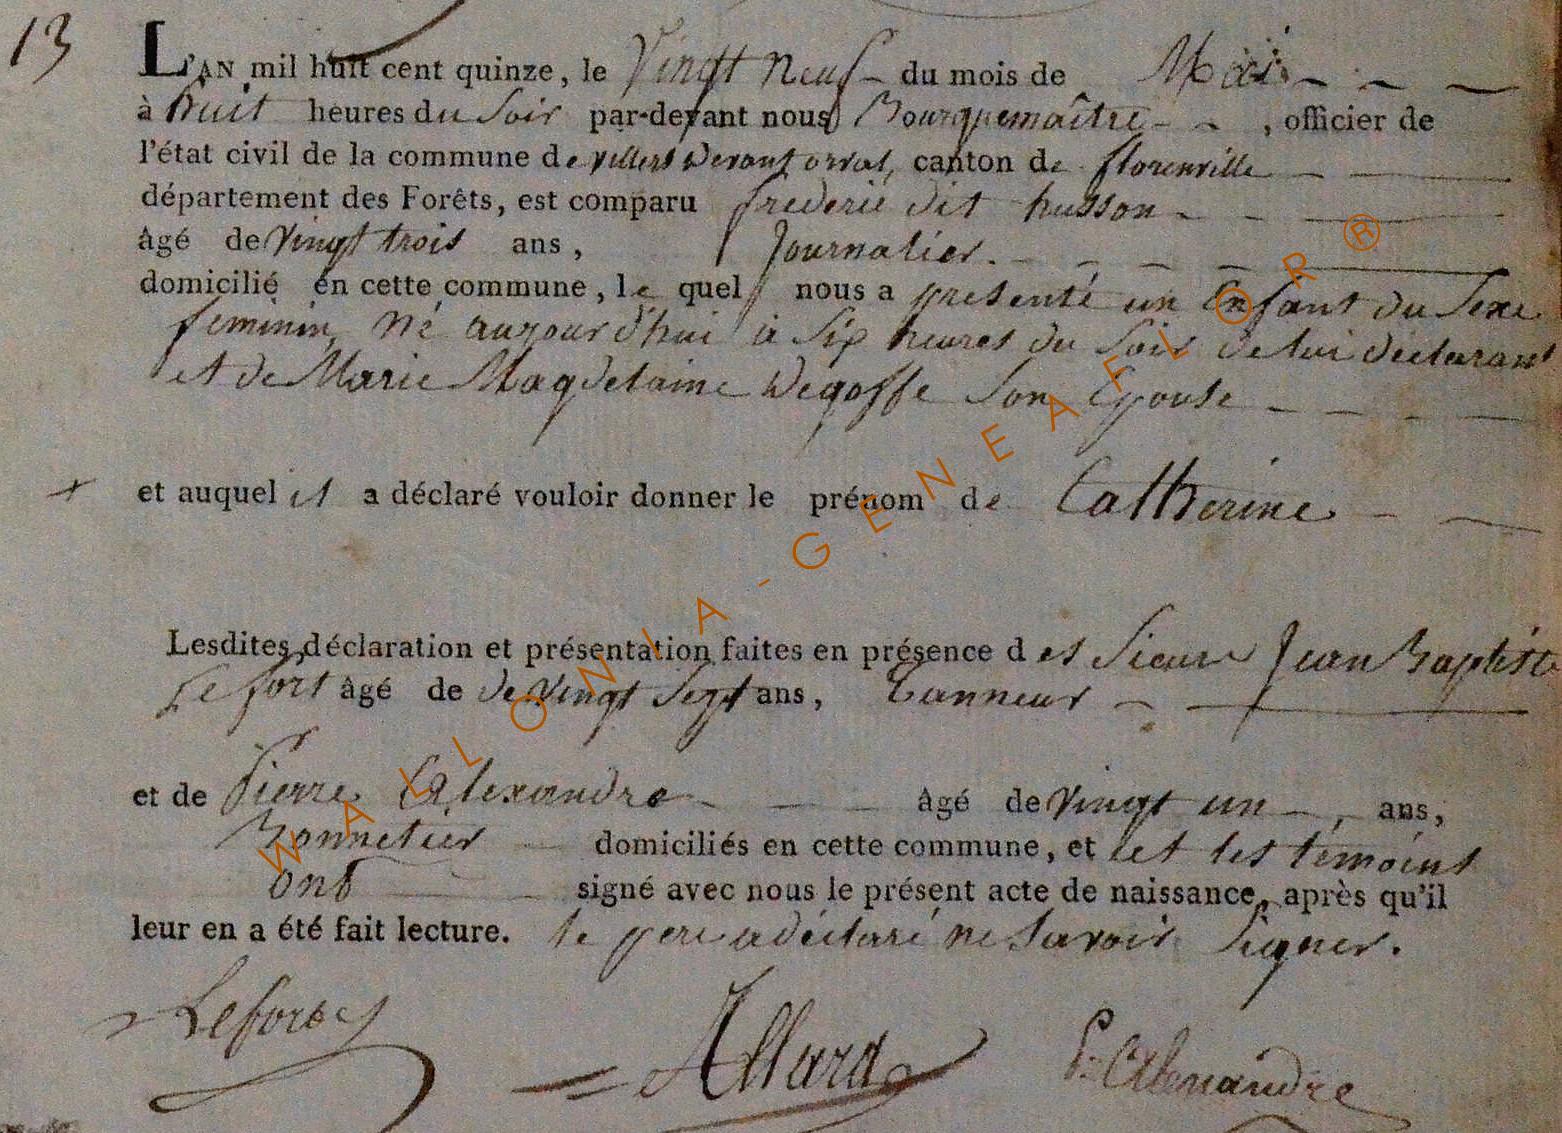 13
L'AN mil huit cent quinze, le Vingt Neuf du mois de Mai
à huit heures du Soir par-devant nous Bourguemaître, officier de
l'état civil de la commune de villers devant orval, canton de florenville
département des Forêts, est comparu frederic dit husson
âgé de Vingt trois ans, Journalier.
domicilié en cette commune, le quel nous a presenté un Enfant du Sexe
feminin, Né aujourd'hui à Six heures du Soir de lui déclarant
et de Marie Magdelaine Degoffe Son Epouse
+ et auquel il a déclaré vouloir donner le prénom de Catherine
Lesdites déclaration et présentation faites en présence des Sieurs Jean Baptiste
Lefort âgé de de Vingt Sept ans, Tanneur
et de Pierre Alexandre âgé de Vingt un, ans,
Bonnetier domiciliés en cette commune, et et les témoins
ont signé avec nous le présent acte de naissance, après qu'il
leur en a été fait lecture. le pere a déclaré ne Savoir Signer.
Lefort Allard P. Alexandre
WALLONIA-GENEAFLOR®